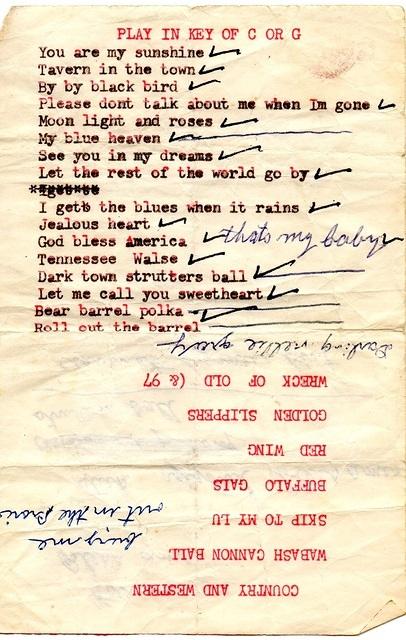 PLAY IN KEY OF C OR G
You are my sunshine
Tavern in the town
By by black bird
Please dont talk about me when Im gone
Moon light and roses
My blue heaven
See you in my dreams
Let the rest of the world go by
I gett the blues when it rains
Jealous heart
God bless America thats my baby
Tennessee Walse
Dark town strutters ball
Let me call you sweetheart
Bear barrel polka
Roll out the barrel
COUNTRY AND WESTERN
WABASH CANNON BALL
bury me
SKIP TO MY LU
out in the
BUFFALO GALS
RED WING
GOLDEN SLIPPERS
WRECK OF OLD (& 97
Darling nellie grey